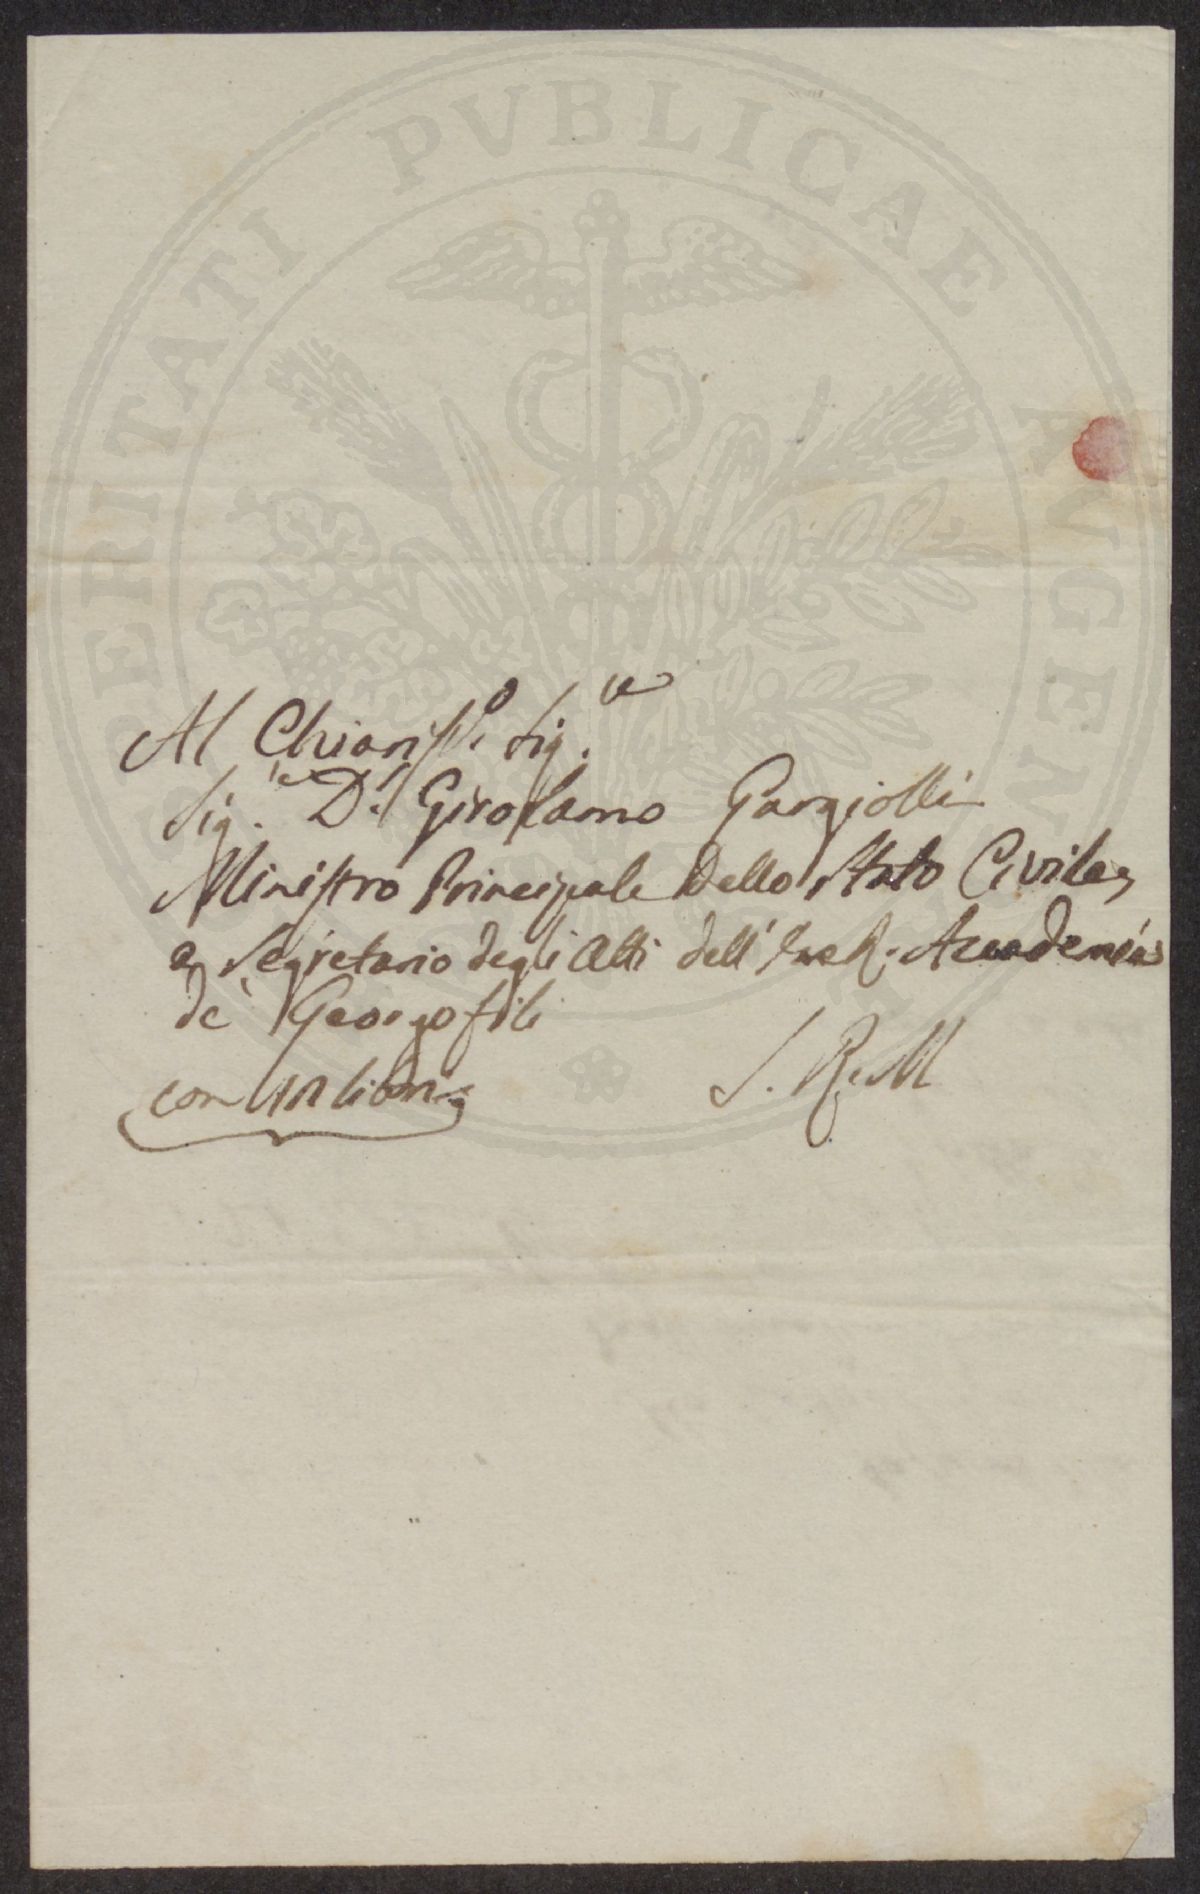 PROSPERITATI PVBLICAE AVGENDAE
Al Chiariss.o Sig.re
Sig.re D.r Girolamo Gargiolli
Ministro Principale Dello Stato Civile,
e Segretario degli Atti dell' I. e R. Accademia
de' Georgofili
con un libri
S. R. M